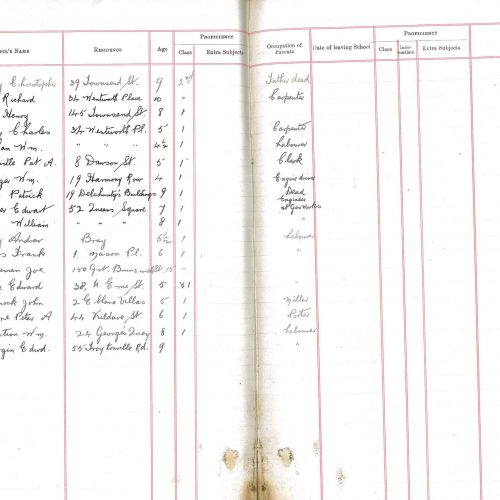 Proficiency Proficiency
Name Residence Age Class Extra Subjects Occupation of Parents Date of leaving School Class Inter-mediate Extra Subjects
Christopher 39 Townsend St. 9 2nd Father dead
Richard 34 Wentworth Place 10 " Carpenter
Henry 145 Townsend St. 8 1
Charles 34 Wentworth Pl. 5 1 Carpenter
Wm. " " " 4½ 1 Labourer
Pat. A. 8 Dawson St. 5 1 Clerk
Wm. 19 Harmony Row 4 1 Engine driver
Patrick 19 Delahunty's Buildings 9 1 Dead
Edward 52 Queens Square 7 1 Engineer at Gas Works
William " " " 8 1 "
Andrew Bray 6½ 1 Labourer
Frank 1 Mason Pl. 6 1 "
Joe 150 Grt. Brunswick St. 15 -
Edward 38, St. 5 1
John 2 Villas 5 1 Miller
Peter A 44 Kildare St. 6 1 Porter
Wm. 24 George's Quay 8 1 Labourer
Edwd. 55 Rd. 9 "